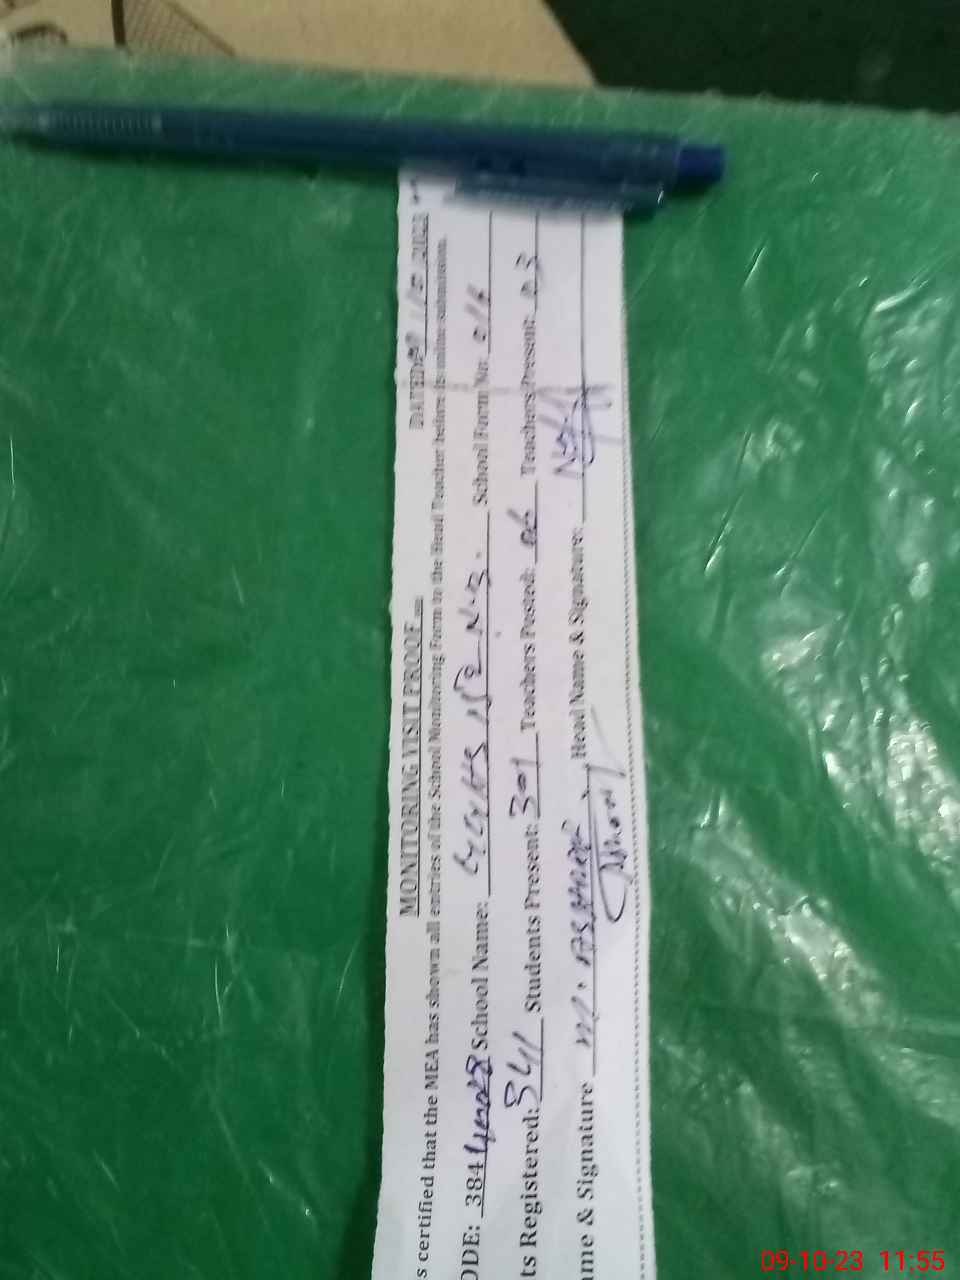 MONITORING VISIT PROOF DATED: 2023
s certified that the MEA has shown all entries of the School Monitoring Form to the Head Teacher before its online submission.
ODE: 384 School Name: School Form No: 016
ts Registered: 341 Students Present: 301 Teachers Posted: 06 Teachers Present: 03
ame & Signature M. Ashraf Head Name & Signature:
09-10-23 11:55